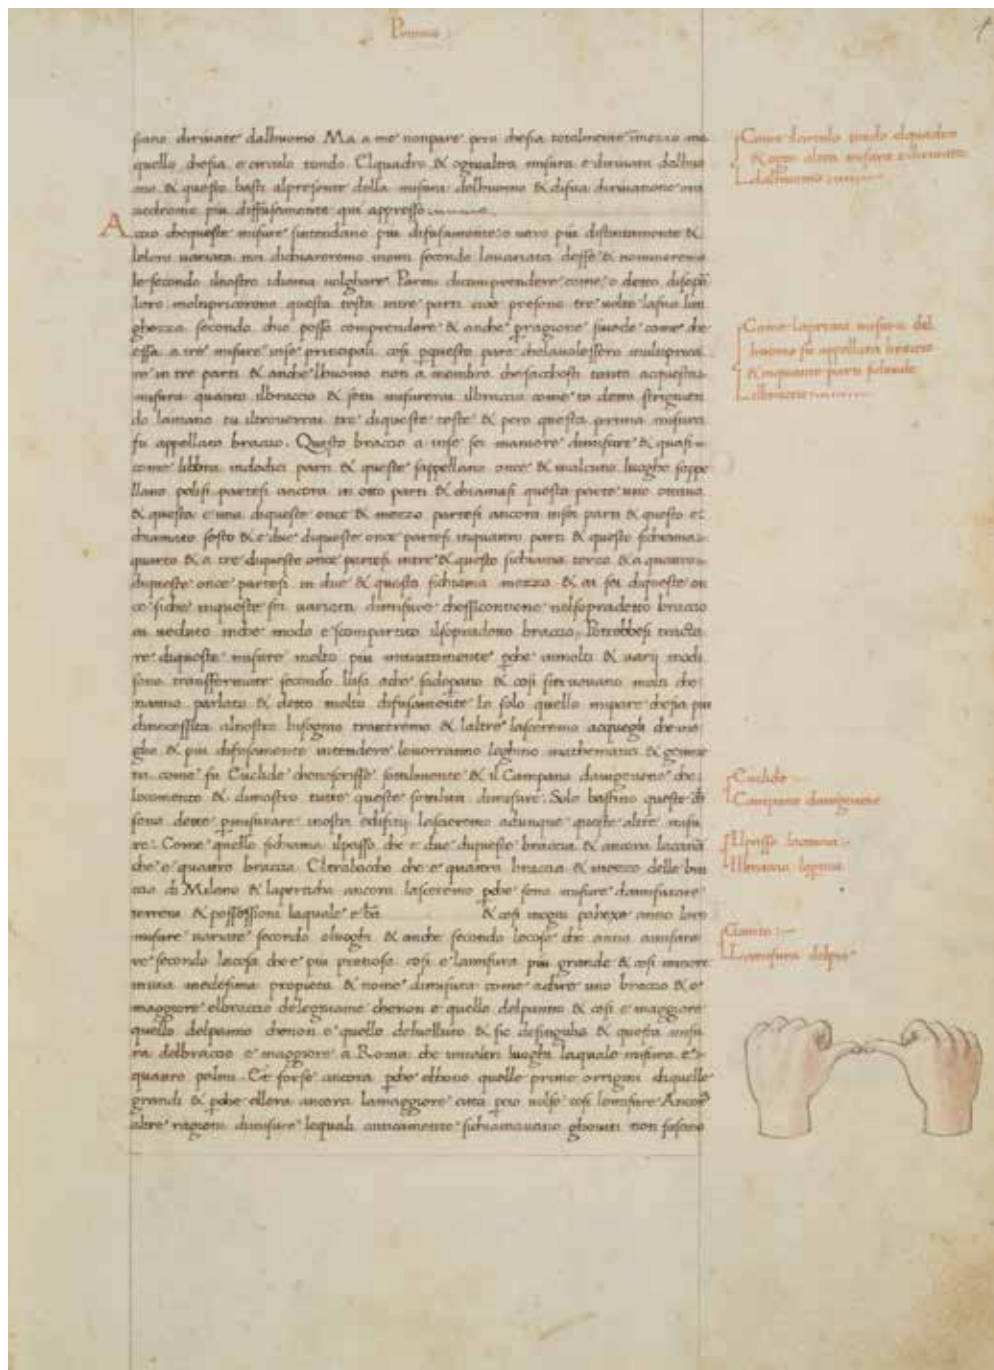 Primus
fiano dirivate dalhuomo Ma a me nonpare pero chesia totalmente mezzo ma
quello chesia e circulo tondo Elquadro & ognialtra misura e dirivata dalhuo
mo & questo basti alpresente della misura delhuomo & disua dirivatione ma
vedreme piu diffusamente qui appresso
Accio chequeste misure sintendano piu difusamente o vero piu distintamente &
loloro variata noi dichiareremo inomi secondo lavariata desse & nomineremo
le secondo ilnostro idioma volghare Parmi dicomprendere come o detto
loro questa testa intre parti cioe presono tre volte lasua lun
ghezza secondo chio posso comprendere & anche pragione sivede come che
essa a tre misure inse principali cosi pquesto pare chelavolessero multiprica
re in tre parti & anche lhuomo non a membro chesaccosti tanto acquesta
misura quanto ilbraccio & setu misurerai ilbraccio come to detto strignen
do lamano tu iltroverrai tre diqueste teste & pero questa prima misura
fu appellato braccio. Questo braccio a inse sei maniere dimisure & quasi
come libbra indodici parti & queste sappellano once & inalcuno luogho sappe
llano polisi partesi ancora in otto parti & chiamasi questa parte uno ottavo
& questa e una diqueste once & mezzo partesi ancora insei parti & questo e
chiamato sesto & e due diqueste once partesi inquattro parti & questo sichiama
quarto & a tre diqueste once partesi intre & questo sichiama terzo & a quattro
diqueste once partesi in due & questo sichiama mezzo & ai sei diqueste on
ce siche inqueste sei variati dimisure chessicontiene nelsopradetto braccio
ai veduto inche modo e scompartito ilsopradetto braccio. Potrebbesi tracta
re diqueste misure molto piu minuttamente pche inmolti & varij modi
sono transformate secondo luso ache sadoperano & cosi sitruovano molti che
nanno parlato & detto molto difusamente Io solo quello mipare chesia piu
dinecessita alnostro bisogno tratteremo & laltre lasceremo acquegli che me
glio & piu difusamente intendere levorranno leghino mathematici & geome
tri come fu Euclide chenescrisse sottilmente & il Campano danigevene che
locomento & dimostro tutte queste sottilita dimisure. Solo bastino queste
sono dette pmisurare inostri edifitij lasceremo adunque queste altre misu
re. Come quello sichiama ilpasso che e due diqueste braccia & ancora lacanna
che e quattro braccia Eltrabocho che e quattro braccia & mezzo delle bra
ccia di Milano & lapertica ancora lasceremo pche sono misure damisurare
terreni & possessioni laquale e & cosi inogni pahexe anno loro
misure variate secondo eluoghi & anche secondo lecose che anno amisura
re secondo lacosa che e piu pretiosa cosi e lamisura piu grande & cosi minore
inuna medesima propieta & nome dimisura come adire uno braccio & e
maggiore elbraccio delegname chenon e quello delpanno & cosi e maggiore
quello delpanno chenon e quello delvelluto & sic desingulis & questa misu
ra delbraccio e maggiore a Roma che inaltri luoghi laquale misura e
quattro palmi. Et forse ancora pche ebbono quelle prime origini diquelle
grandi & pche ellera ancora lamaggiore citta pero volse cosi lemisure Ancora
altre ragioni dimisure lequali anticamente sichiamavano ghomiti non
Come ilcirculo tondo elquadro
& ogni altra misura e dirivata
dalhuomo
Come laprima misura del
huomo fu appellata braccio
& inquante parti sidevide
ilbraccio
Euclide
Campano danigevene
Elpasso lacanna
Canto
Lamisura delpie